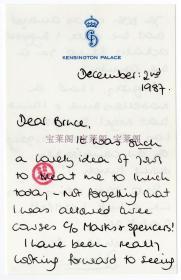 KENSINGTON PALACE
December: 2nd
1987.
Dear Bruce,
It was such
宝莱阁 宝莱阁 宝莱阁
a lovely idea of yours
to treat me to lunch
today - not forgetting that
I was allowed three
courses c/o Marks & Spencers!
I have been really
looking forward to seeing